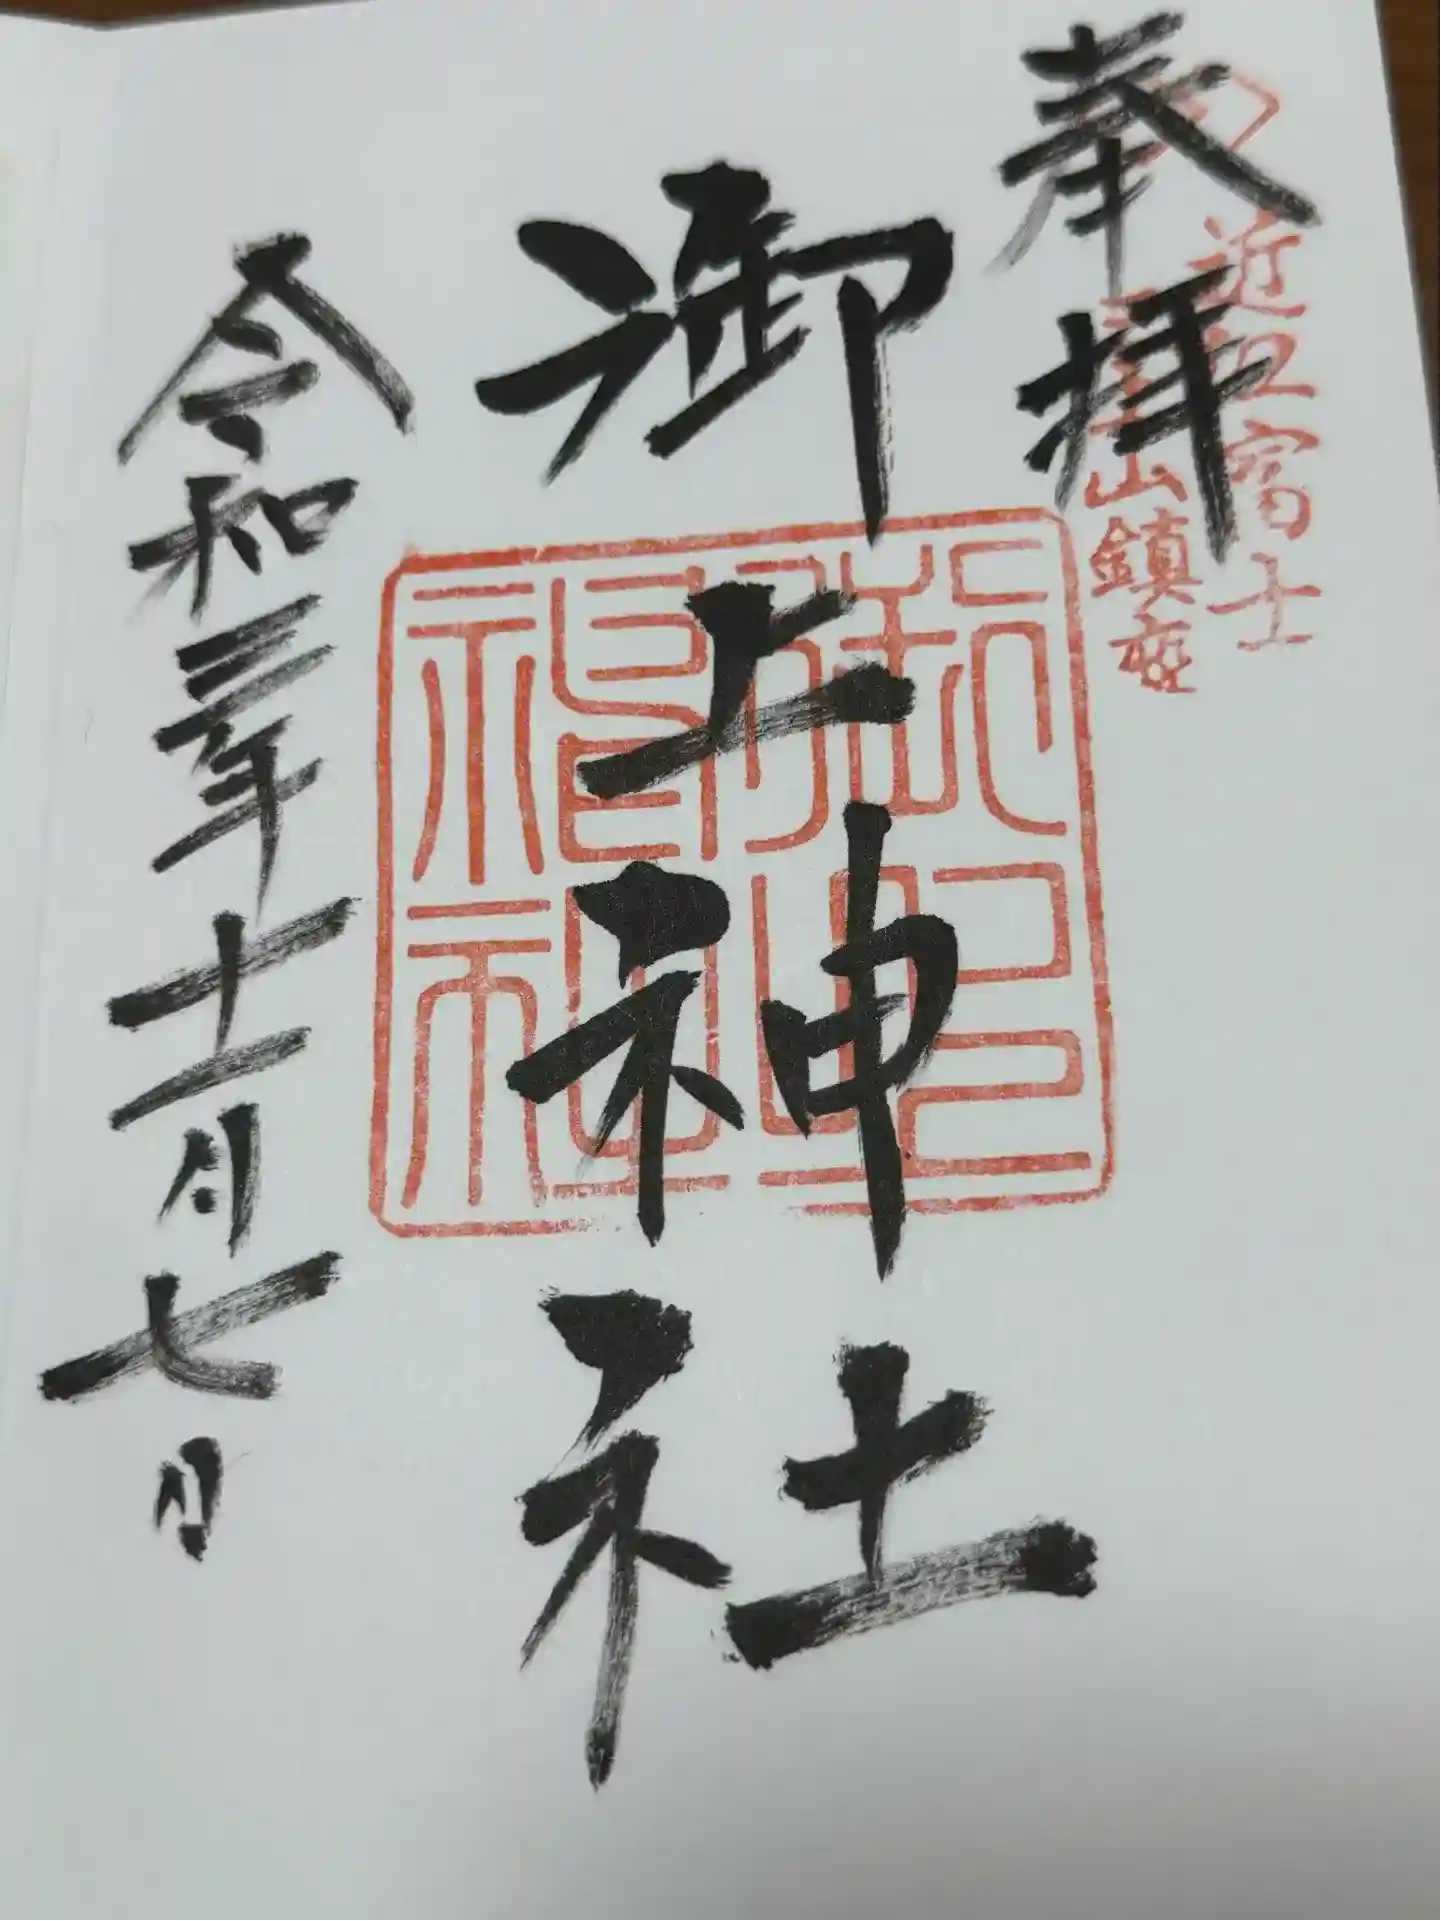 奉拝
近江富士
三上山鎮座
御上神社
御上神社
令和三年十一月七日